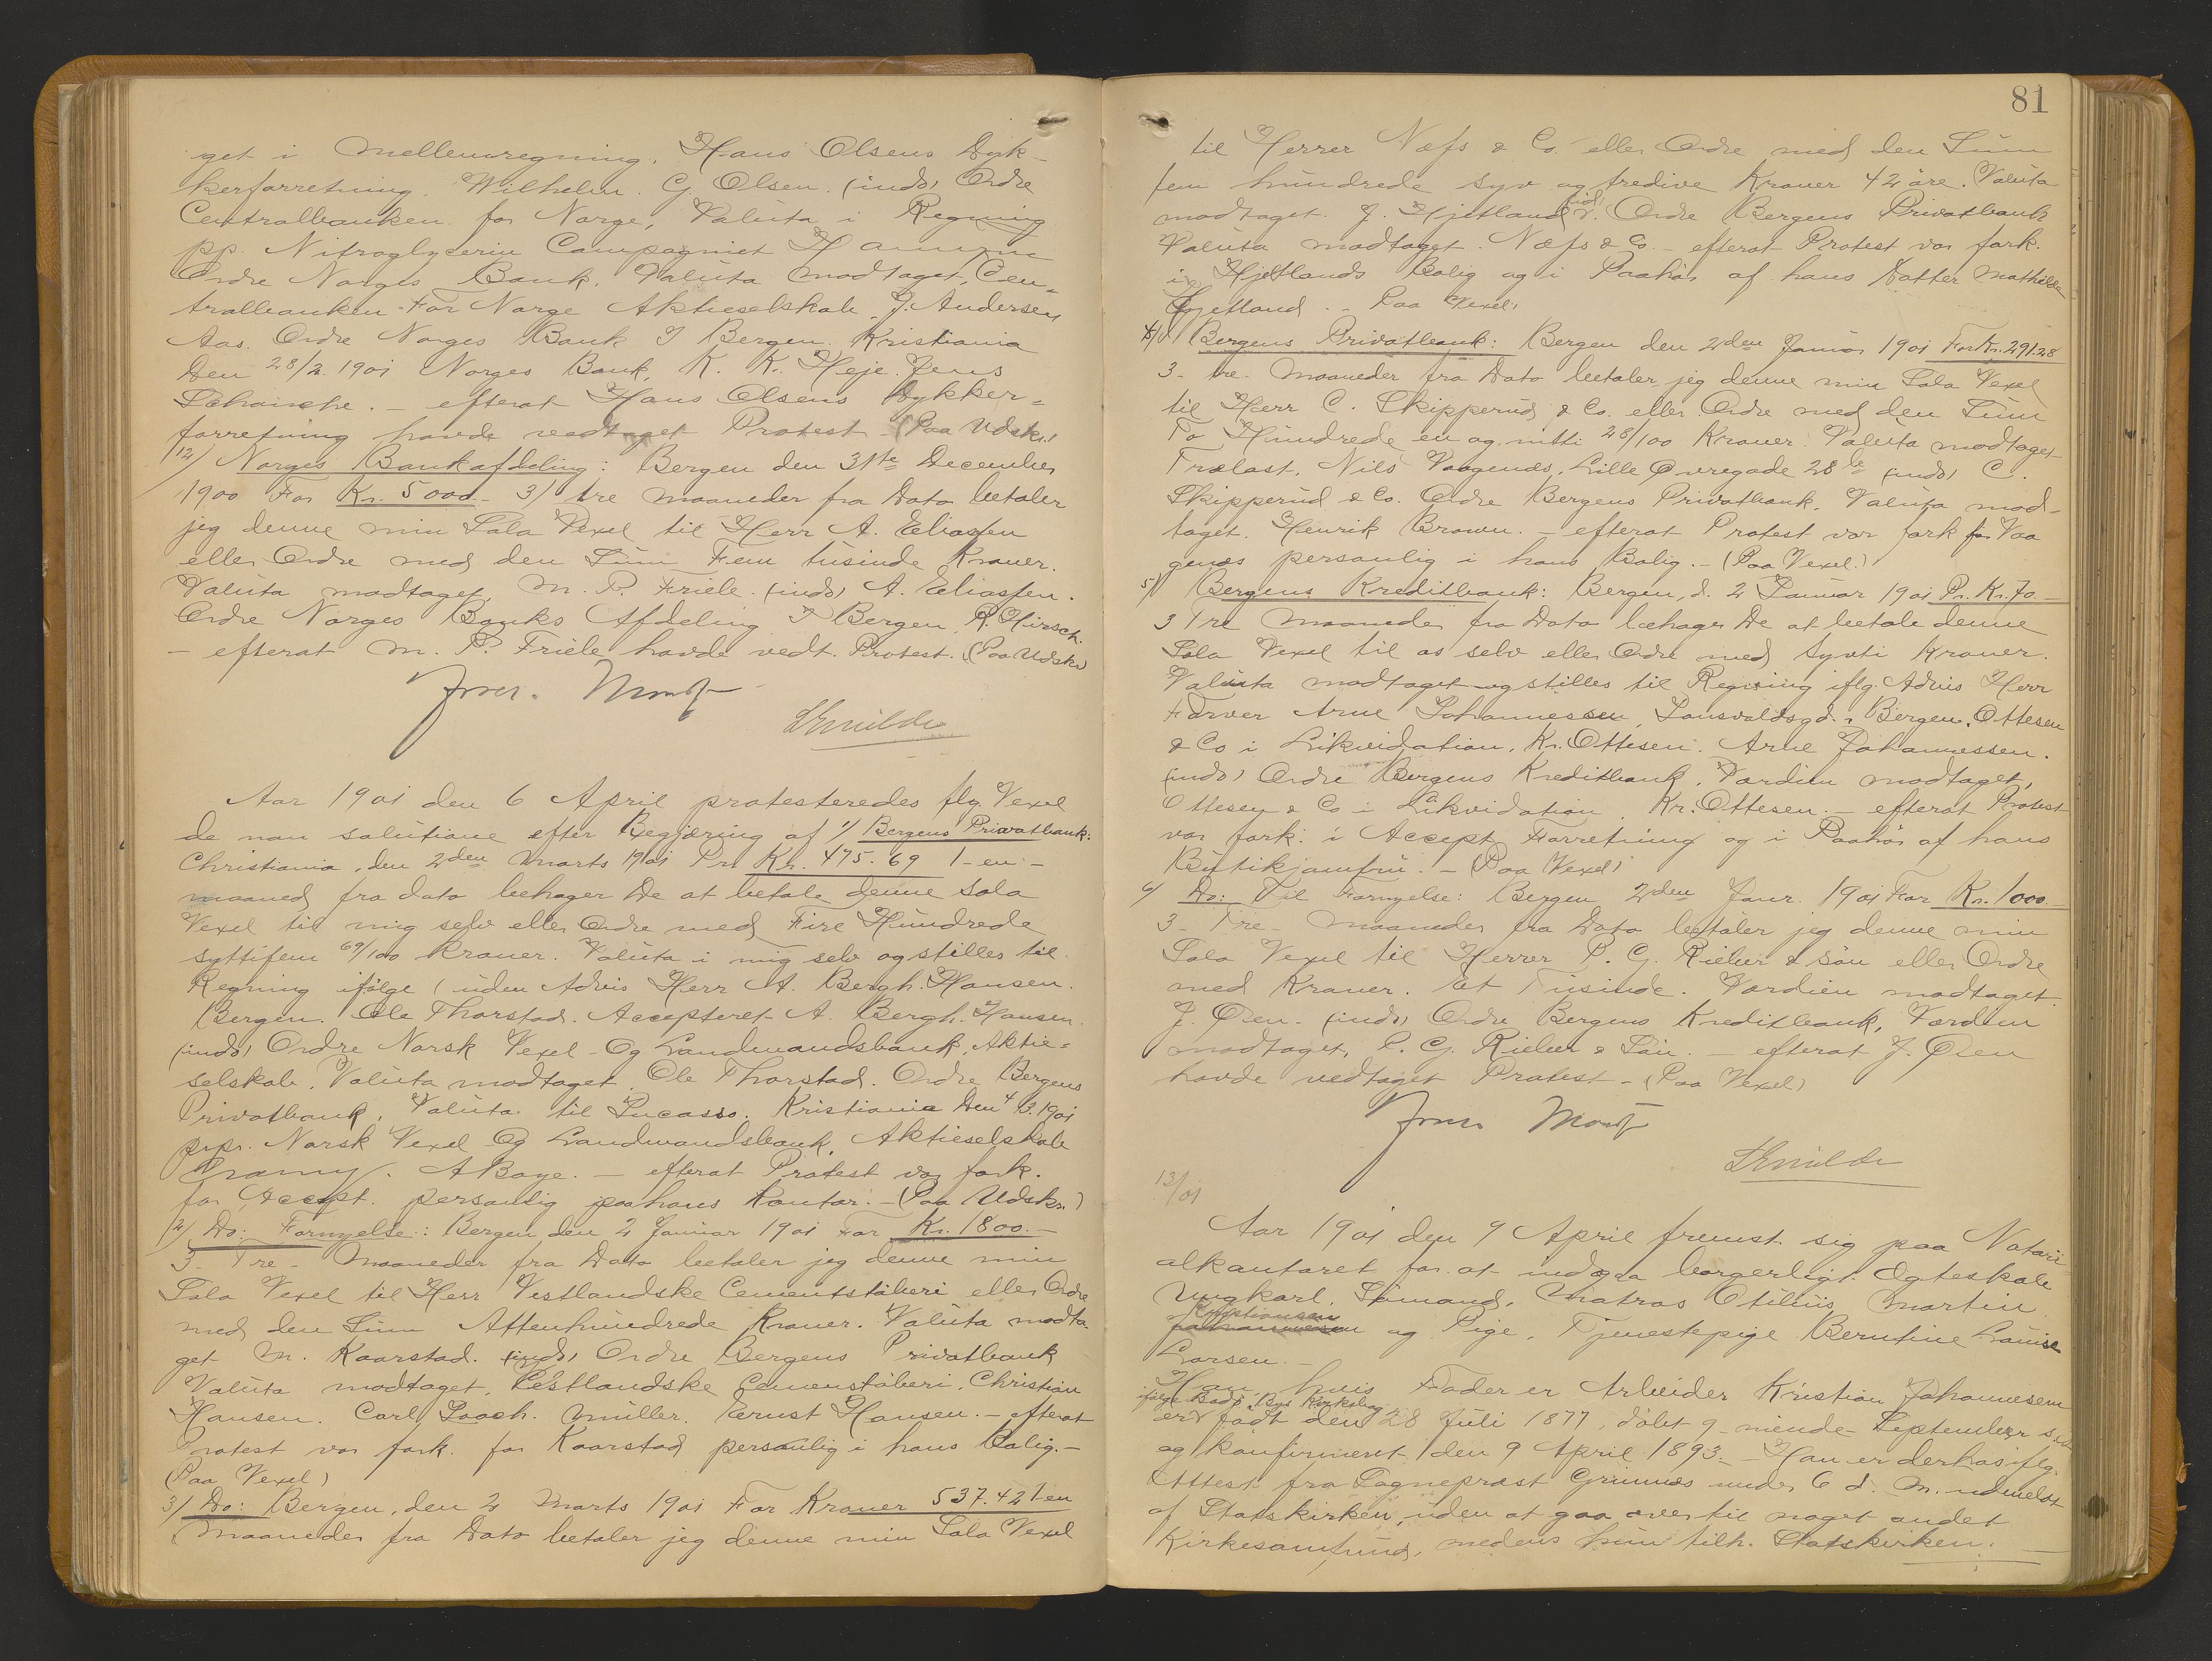 get i Mellemregning. Hans Olsens Dyk-
kerforretning. Wilhelm. G. Olsen. (indo) Ordre
Centralbanken for Norge, Valuta i Regning
pp. Nitroglycerin Compagniet
Ordre Norges Bank. Valuta modtaget, Cen-
tralbanken For Norge Aktieselskab. J. Andersen
Aas. Ordre Norges Bank I Bergen. Kristiania
Den 28/2. 1901 Norges Bank, K. K. Heje. Jens
efterat Hans Olsens Dykker-
forretning havde vedtaget Protest - (Paa Udskr.)
12/ Norges Bankafdeling: Bergen den 31te December
1900 For Kr. 5000.- 3/ tre maaneder fra Dato betaler
jeg denne min Sola Vexel til Herr A. Eliassen
eller Ordre med den Sum Fem tusinde Kroner.
Valuta modtaget, M. P. Friele. (indo) A. Eliassen.
Ordre Norges Banks Afdeling I Bergen, R. Hirsch.
- efterat M. P. Friele havde vedt. Protest. (Paa Udskr.)
Aar 1901 den 6 April protesteredes flg. Vexel
de non solutione efter Begjæring af 1/ Bergens Privatbank:
Christiania, den 2den Marts 1901 Pr. Kr. 475.69 1- en -
maaned fra dato behager De at betale denne Sola
Vexel til mig selv eller Ordre med Fire Hundrede
syttifem 69/100 Kroner. Valuta i mig selv og stilles til
Regning ifølge (uden Advis Herr A. Bergh. Hansen.
Bergen. Ole Thorstad. Accepteret A. Bergh. Hansen.
(indo) Ordre Norsk Vexel- Og Landmandsbank, Aktie-
selskab. Valuta modtaget. Ole Thorstad. Ordre Bergens
Privatbank, Valuta til Incasso. Kristiania Den 4/3. 1901
prpr. Norsk Vexel Og Landmandsbank, Aktieselskab
A Boye. - efterat Protest var fork.
for Accept. personlig paa hans Kontor. - (Paa Udskr.)
2/ Do: Fornyelse: Bergen, den 2 Januar 1901 For Kr. 1800.-
3- Tre - Maaneder fra Dato betaler jeg denne min
Sola Vexel til Herr Vestlandske Cementstøberi eller Ordre
med den Sum Attenhundrede Kroner. Valuta modta-
get M. Kaarstad. (indo) Ordre Bergens Privatbank
Valuta modtaget, Vestlandske Cementstøberi. Christian
Hansen. Carl Müller. Ernst Hansen. - efterat
Protest var fork. for Kaarstad personlig i hans Bolig. -
(Paa Vexel)
3/ Do: Bergen, den 2 Marts 1901 For Kroner 537.42 1 en
Maaneder fra Dato betaler jeg denne min Sola Vexel
81
til Herrer Næss & Co. eller Ordre med den Sum
fem hundrede syv og tredive Kroner 42 øre. Valuta
modtaget. J. Hjetland. Ordre Bergens Privatbank
Valuta modtaget. Næss & Co. - efterat Protest var fork.
i Hjetlands Bolig og i Paahør af hans Datter Mathilde
Hjetland. - Paa Vexel)
4/ Bergens Privatbank: Bergen den 2den Januar 1901 For Kr. 291.28
3- tre - Maaneder fra Dato betaler jeg denne min Sola Vexel
til Herr C. Skipperud & Co. eller Ordre med den Sum
To Hundrede en og nitti 28/100 Kroner. Valuta modtaget
Trælast. Nils Vaagenæs, Lille Øvregade 28 (indo) C.
Skipperud & Co. Ordre Bergens Privatbank. Valuta mod-
taget. Henrik Brown. - efterat Protest var fork for Vaa
genæs personlig i hans Bolig. - (Paa Vexel.)
5/ Bergens Kreditbank: Bergen, d. 2 Januar 1901 Pr. Kr. 70.-
3 Tre Maaneder fra Dato behager De at betale denne
Sola Vexel til os selv eller Ordre med Sytti Kroner.
Valuta modtaget og stilles til Regning iflg. Advis Herr
Farver Arne Johannessen, Bergen. Ottesen
& Co i Likvidation. Kr. Ottesen. Arne Johannessen.
(indo) Ordre Bergens Kreditbank. Værdien modtaget,
Ottesen & Co i Likvidation. Kr. Ottesen. - efterat Protest
var fork: i Accept. Forretning og i Paahør af hans
Butikjomfru. - (Paa Vexel)
6/ Do: Til Fornyelse: Bergen 2den Janr. 1901 For Kr. 1000.-
3- Tre - Maaneder fra Dato betaler jeg denne min
Sola Vexel til Herrer P. G. Rieber & Søn eller Ordre
med Kroner. Et Tusinde. Værdien modtaget.
J. Øien. (indo) Ordre Bergens Kreditbank, Værdien
modtaget, P. G. Rieber & Søn. - efterat J. Øien
havde vedtaget Protest - (Paa Vexel)
13/01
Aar 1901 den 9 April fremst. sig paa Notari-
alkontoret for at indgaa borgerligt Ægteskab
Ungkarl, Sømand, Matros Otilius Martin
Kristiansen
Johannessen og Pige, Tjenestepige Berntine Louise
Larsen. -
Han, hvis Fader er Arbeider Kristian Johannesen
ifølge Bodø Bys Kirkebog
er født den 28 Juli 1877, døbt 9 - niende - September s.A.
og konfirmeret den 9 April 1893. - Han er derhos iflg.
Attest fra Sogneprest Grimnæs under 6 d. M. udmeldt
af Statskirken, uden at gaa over til noget andet
Kirkesamfund, medens hun tilh. Statskirken. -